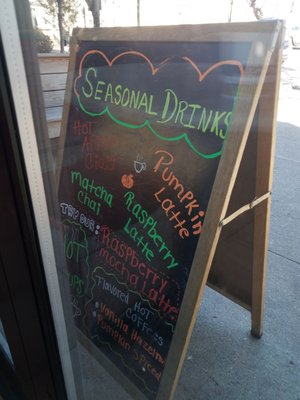 SEASONAL DRINKS
HOT
Cider
Pumpkin
Latte
matcha
chai
Raspberry
Latte
TRY OUR:
Raspberry
mocha Latte
Flavored HOT
COFFEES
Vanilla Hazelnut
Pumpkin Spiced